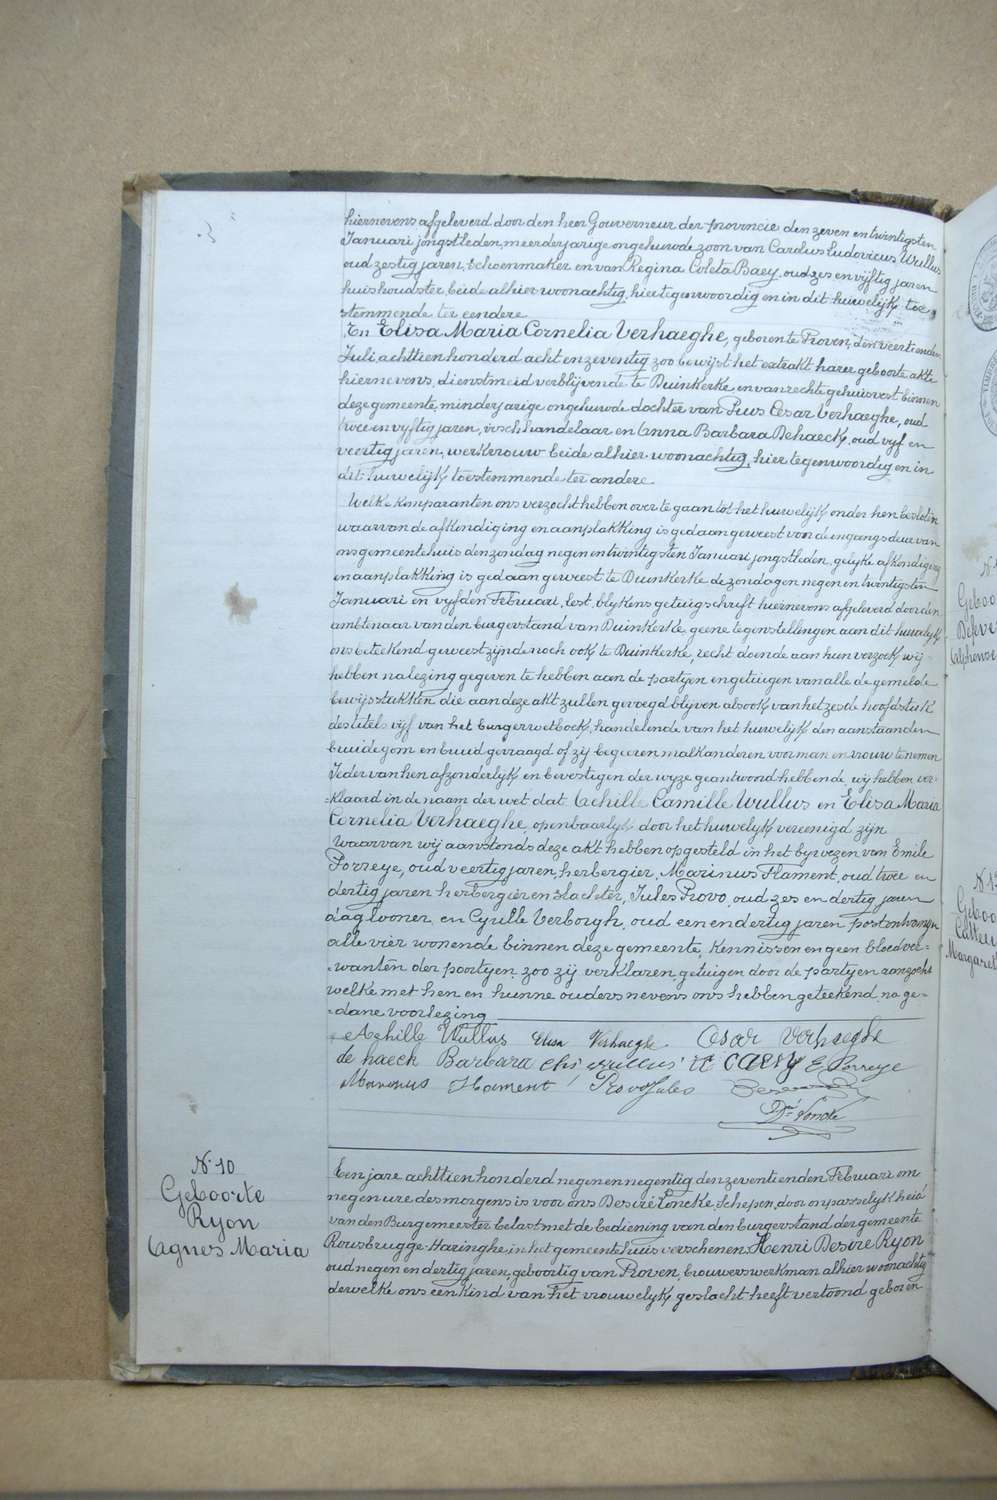 hiernevens afgeleverd door den heer Gouverneur der provincie den zeven en twintigsten
Januari jongstleden, meerderjarige ongehuwde zoon van Carolus Ludovicus Wullus
oud zestig jaren, schoenmaker en van Regina Coleta Baey, oud zes en vijftig jaren
huishoudster, beide alhier woonachtig, hier tegenwoordig en in dit huwelijk toe=
stemmende ter eendere
En Elisa Maria Cornelia Verhaeghe, geboren te Proven, den veertienden
Juli achttien honderd acht en zeventig zoo bewijst het extrakt harer geboorte akte
hiernevens, dienstmeid verblijvende te Duinkerke en van rechte gehuisvest binnen
deze gemeente, minderjarige ongehuwde dochter van Pius Cesar Verhaeghe, oud
twee en vyftig jaren, vischhandelaar en Anna Barbara Dehaeck, oud vyf en
veertig jaren, werkvrouw beide alhier woonachtig, hier tegenwoordig en in
dit huwelijk toestemmende ter andere
Welke komparanten ons verzocht hebben over te gaan tot het huwelijk onder hen besloten
waarvan de afkondiging en aanplakking is gedaan geweest voor de ingangsdeur van
ons gemeentehuis den zondag negen en twintigsten Januari jongstleden, gelyke afkondiging
en aanplakking is gedaan geweest te Duinkerke de zondagen negen en twintigsten
Januari en vyfden Februari, lest, blykens getuigschrift hiernevens afgeleverd door den
ambtenaar van den burgerstand van Duinkerke, geene tegenstellingen aan dit huwelyk
ons beteekend geweest zijnde noch ook te Duinkerke, recht doende aan hun verzoek wij
hebben na lezing gegeven te hebben aan de partyen en getuigen van alle de gemelde
bewijsstukken die aan deze akt zullen gevoegd blyven alsook van het zesde hoofdstuk
des titels vyf van het burgerwetboek, handelende van het huwelijk den aanstaanden
bruidegom en bruid gevraagd of zij begeeren malkanderen voor man en vrouw te nemen
Ieder van hen afzonderlyk en bevestigender wyze geantwoord hebbende, wij hebben ver=
=klaard in de naam der wet dat Achille Camille Wullus en Elisa Maria
Cornelia Verhaeghe, openbaarlyk door het huwelyk vereenigd zijn
Waarvan wij aanstonds deze akt hebben opgesteld in het bywezen van Emile
Porreye, oud veertig jaren, herbergier, Marinus Flament, oud twee en
dertig jaren herbergier en slachter, Jules Provo, oud zes en dertig jaren
daglooner en Cyrille Verborgh, oud een en dertig jaren postontvanger
alle vier wonende binnen deze gemeente, kennissen en geen bloedver=
=wanten der partyen zoo zij verklaren, getuigen door de partyen aanzocht
welke met hen en hunne ouders nevens ons hebben geteekend, na ge=
=dane voorlezing
Achille Wullus Elisa Verhaeghe Cesar Verhaeghe
de haeck Barbara Chs Wullus R C Baey E. Porreye
Marinus Flament Provo Jules
Dré Loncke
N. 10
Geboorte
Ryon
Agnes Maria
Een jare achttien honderd negen en negentig den zeventienden Februari om
negen ure des morgens is voor ons Desiré Loncke, schepen, door onpasselyk heid
van den Burgemeester belast met de bediening van den burgerstand der gemeente
Rousbrugge-Haringhe, in het gemeentehuis verschenen Henri Desire Ryon
oud negen en dertig jaren, geboortig van Proven, brouwerswerkman alhier woonachtig
derwelke ons een kind van het vrouwelyk geslacht heeft vertoond geboren
N.
N. 1